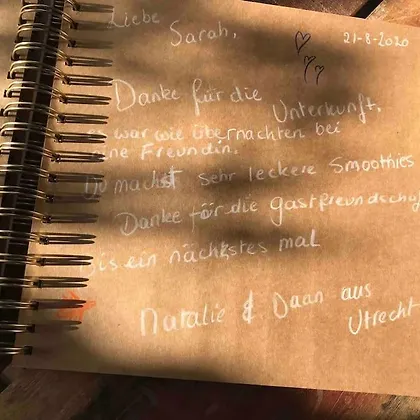 Liebe
Sarah,
21-8-2020
Danke für die Unterkunft.
war wie übernachten bei
Freundin.
Du machst sehr leckere Smoothies
Danke för die gastfreundschaf
Bis ein nächstes mal
Natalie & Daan aus
Utrecht